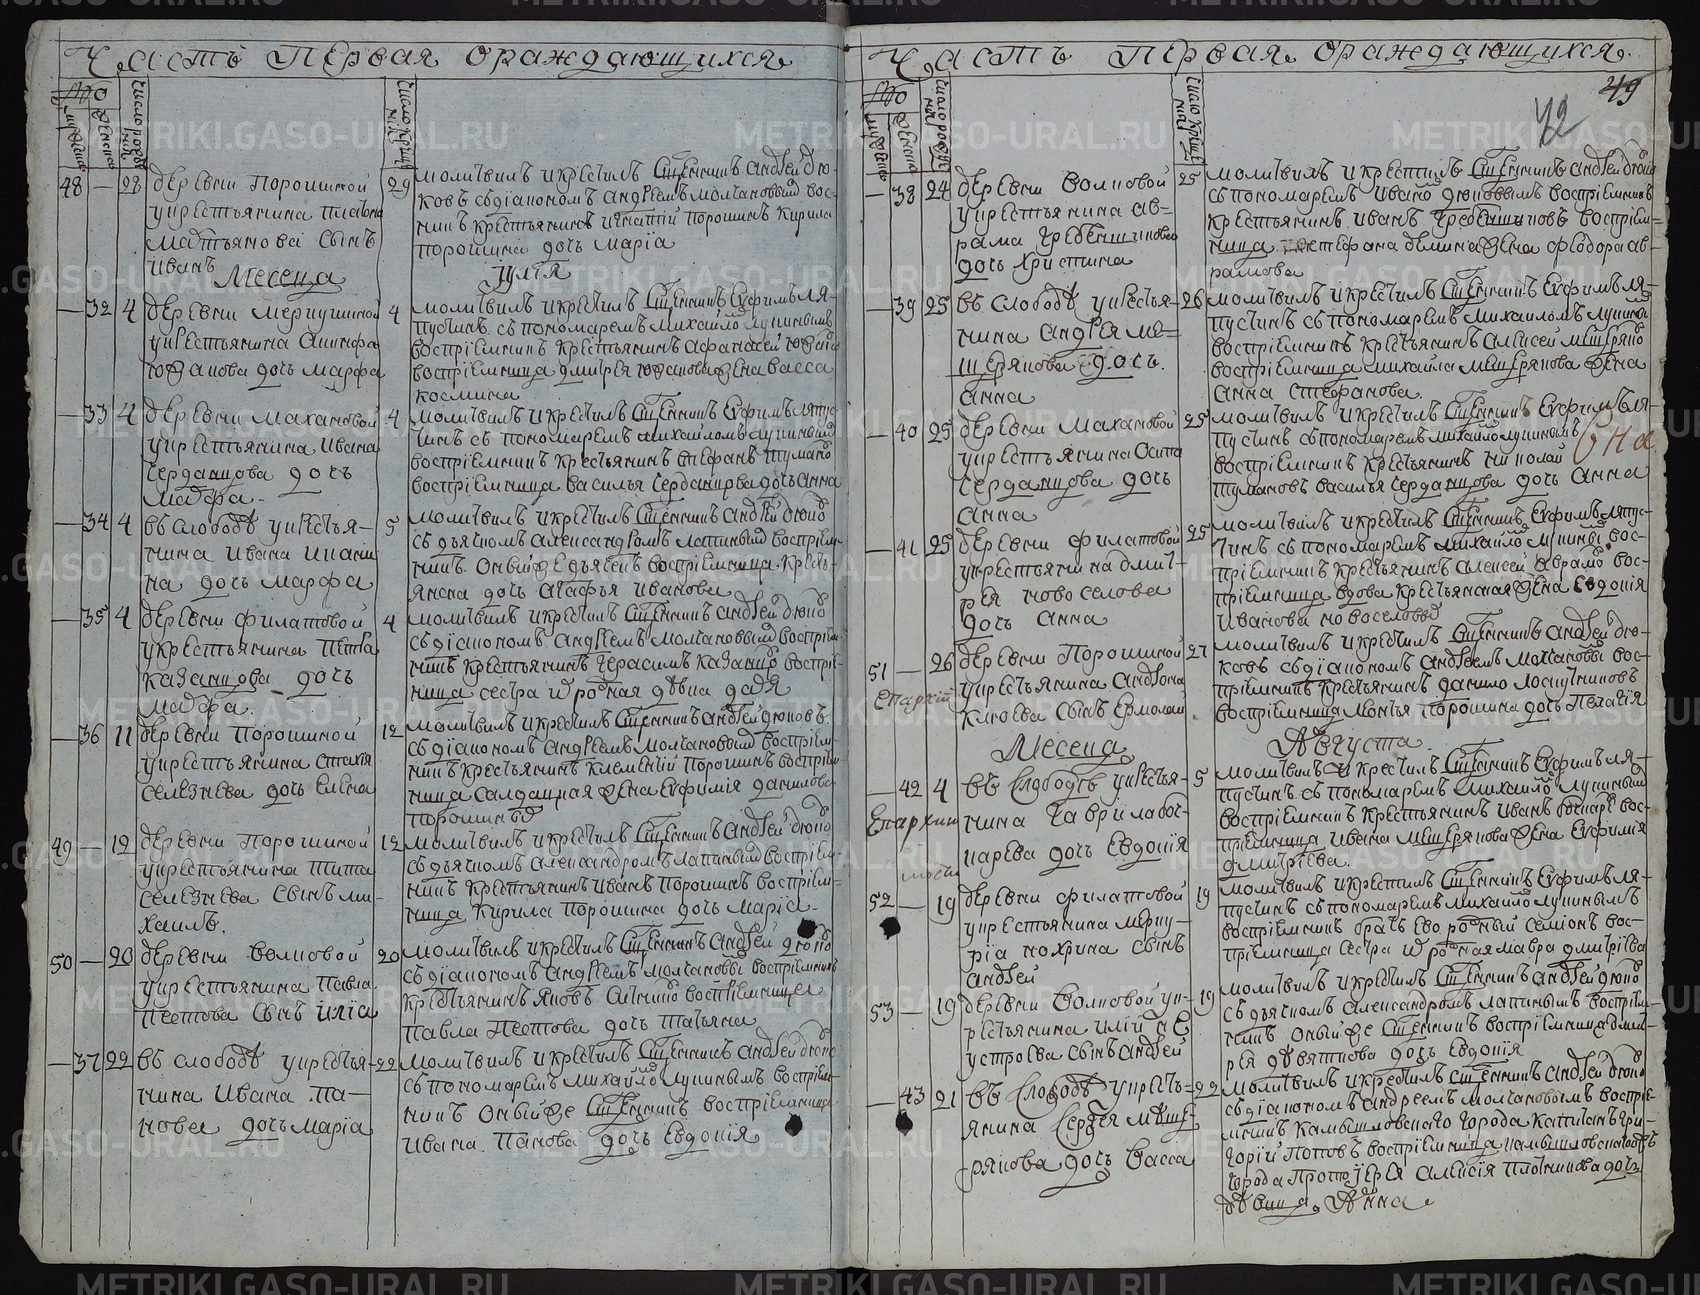 Часть Первая ораждающихся
No
мужеска
женска
число рожде
нія
число креще
нія
48 — 28 деревни Порошиной
укрестьянина
сынъ
Иванъ
29 молитвилъ икрестилъ Сщенникъ андрей дю-
ковъ съдіакономъ андреемъ молчановымъ вос-
никъ крестьянинъ игнатій порошинъ кирила
порошина дочь маріа
Месеца Іулія
— 32 4 деревни
укрестьянина
южакова дочь марфа
4 молитвилъ икрестилъ Сщенникъ Ефимъ ля-
пустинъ съ пономаремъ михайло лукинымъ
воспріемникъ крестьянинъ афанасей южако
воспріемница дмитрея южакова жена васса
космина
— 33 4 деревни Махановой
укрестьянина ивана
сердакцова дочь
марфа
4 молитвилъ икрестилъ Сщенникъ Ефимъ ляпус
тинъ съ пономаремъ михайломъ лукинымъ
воспріемникъ крестьянинъ стефанъ тумако
воспріемница василья сердакцова дочь анна
— 34 4 въ слободе укрестья-
нина ивана
на дочь марфа
5 молитвилъ икрестилъ Сщенникъ андрей дюко
съ дьячкомъ александромъ лапинымъ воспріем-
никъ оный же дьячекъ воспріемница кресть-
янска дочь агафья иванова
— 35 4 деревни филатовой
укрестьянина петра
казанцова дочь
марфа
4 молитвилъ икрестилъ Сщенникъ андрей дюко
съдіакономъ андреемъ молчановымъ воспріем-
никъ крестьянинъ герасимъ казанцо воспріе-
ница сестра родная девка
— 36 11 деревни Порошиной
укрестьянина
селезнева дочь елена
12 молитвилъ икрестилъ Сщенникъ андрей дюковъ
съдіакономъ андреемъ молчановымъ воспріем-
никъ крестьянинъ климентій порошинъ воспріем
ница салдацкая жена ефимія данилова
порошина
49 — 12 деревни Порошиной
укрестьянина тита
селезнева сынъ ми-
хаилъ
12 молитвилъ икрестилъ Сщенникъ андрей дюко
съдьячкомъ александромъ лапинымъ воспріем-
никъ крестьянинъ иванъ порошинъ воспріем-
ница кирила порошина дочь маріа
50 — 20 деревни Волковой
укрестьянина павла
пестова сынъ иліа
20 молитвилъ икрестилъ Сщенникъ андрей дюко
съдіакономъ андреемъ молчановы воспріемникъ
крестьянинъ яковъ воспріемница
павла пестова дочь татьяна
— 37 22 въ слободе укрестья-
нина ивана па-
нова дочь маріа
22 молитвилъ икрестилъ Сщенникъ андрей дюко
съпономаремъ михайло лукинымъ воспріем
никъ оный же Сщенникъ воспріемница
ивана панова дочь евдокія
Часть Первая ораждающихся
49
42
No
мужеска
женска
число рожде
нія
число креще
нія
— 38 24 деревни Волковой
укрестьянина ав-
рама гребенщикова
дочь христина
25 молитвилъ икрестилъ Сщенникъ андрей дюко
съпономаремъ ивано дюковымъ воспріемникъ
крестьянинъ иванъ гребенщиковъ воспріем-
ница стефана демина жена феодора ав-
рамова
— 39 25 въ слободе укрестья-
нина андрея ме-
щерякова дочь
анна
26 молитвилъ икрестилъ Сщенникъ Ефимъ ля-
пустинъ съпономаремъ михаиломъ лукины
воспріемникъ крестьянинъ алексей мещеряко
воспріемница михаила мещерякова жена
анна стефанова
— 40 25 деревни Махановой
укрестьянина осипа
сердакцова дочь
анна
25 молитвилъ икрестилъ Сщенникъ Ефимъ ля-
пустинъ съпономаремъ михайло лукинымъ
воспріемникъ крестьянинъ николай
тумаковъ василья сердакцова дочь анна
— 41 25 деревни филатовой
укрестьянина дмит-
рея новоселова
дочь анна
25 молитвилъ икрестилъ Сщенникъ Ефимъ ляпус-
тинъ съпономаремъ михайло лукины вос-
пріемникъ крестьянинъ алексей аврамо вос-
пріемница вдова крестьянская жена евдокія
иванова новоселовы
51 — 26 деревни Порошиной
епархіи
укрестьянина
клюева сынъ ермолай
27 молитвилъ икрестилъ Сщенникъ андрей дю-
ковъ съдіакономъ андреемъ молчановы вос-
пріемникъ крестьянинъ данило лоскутниковъ
воспріемница порошина дочь пелагія
Месеца Августа
— 42 4 въ Слободе укрестья-
Епархии
нина гаврила боч-
карева дочь Евдокія
5 молитвилъ икрестилъ Сщенникъ Ефимъ ля-
пустинъ съпономаремъ михайло лукинымъ
воспріемникъ крестьянинъ иванъ бочкаре вос-
пріемница ивана мещерякова жена Ефимія
дмитріева
52 — 19 деревни филатовой
укрестьянина
сынъ
андрей
19 молитвилъ икрестилъ Сщенникъ Ефимъ ля-
пустинъ съпономаремъ михайло лукинымъ
воспріемникъ братъ ево родный воспріемница сестра родная мавра дмитріева
53 — 19 деревни Волковой ук-
рестьянина иліи
сынъ андрей
19 молитвилъ икрестилъ Сщенникъ андрей дюко
съдьячкомъ александромъ лапинымъ воспріем-
никъ оный же Сщенникъ воспріемница дмит-
рея девяткова дочь Евдокія
— 43 21 въ Слободе укресть-
янина Сергея меще-
рякова дочь васса
22 молитвилъ икрестилъ Сщенникъ андрей дюко
съдіакономъ андреемъ молчановымъ воспріе-
мникъ камышловскаго города капитанъ гри-
горій поповъ воспріемница камышловскаго
города протоіерея алексія плотникова дочь
девица Анна